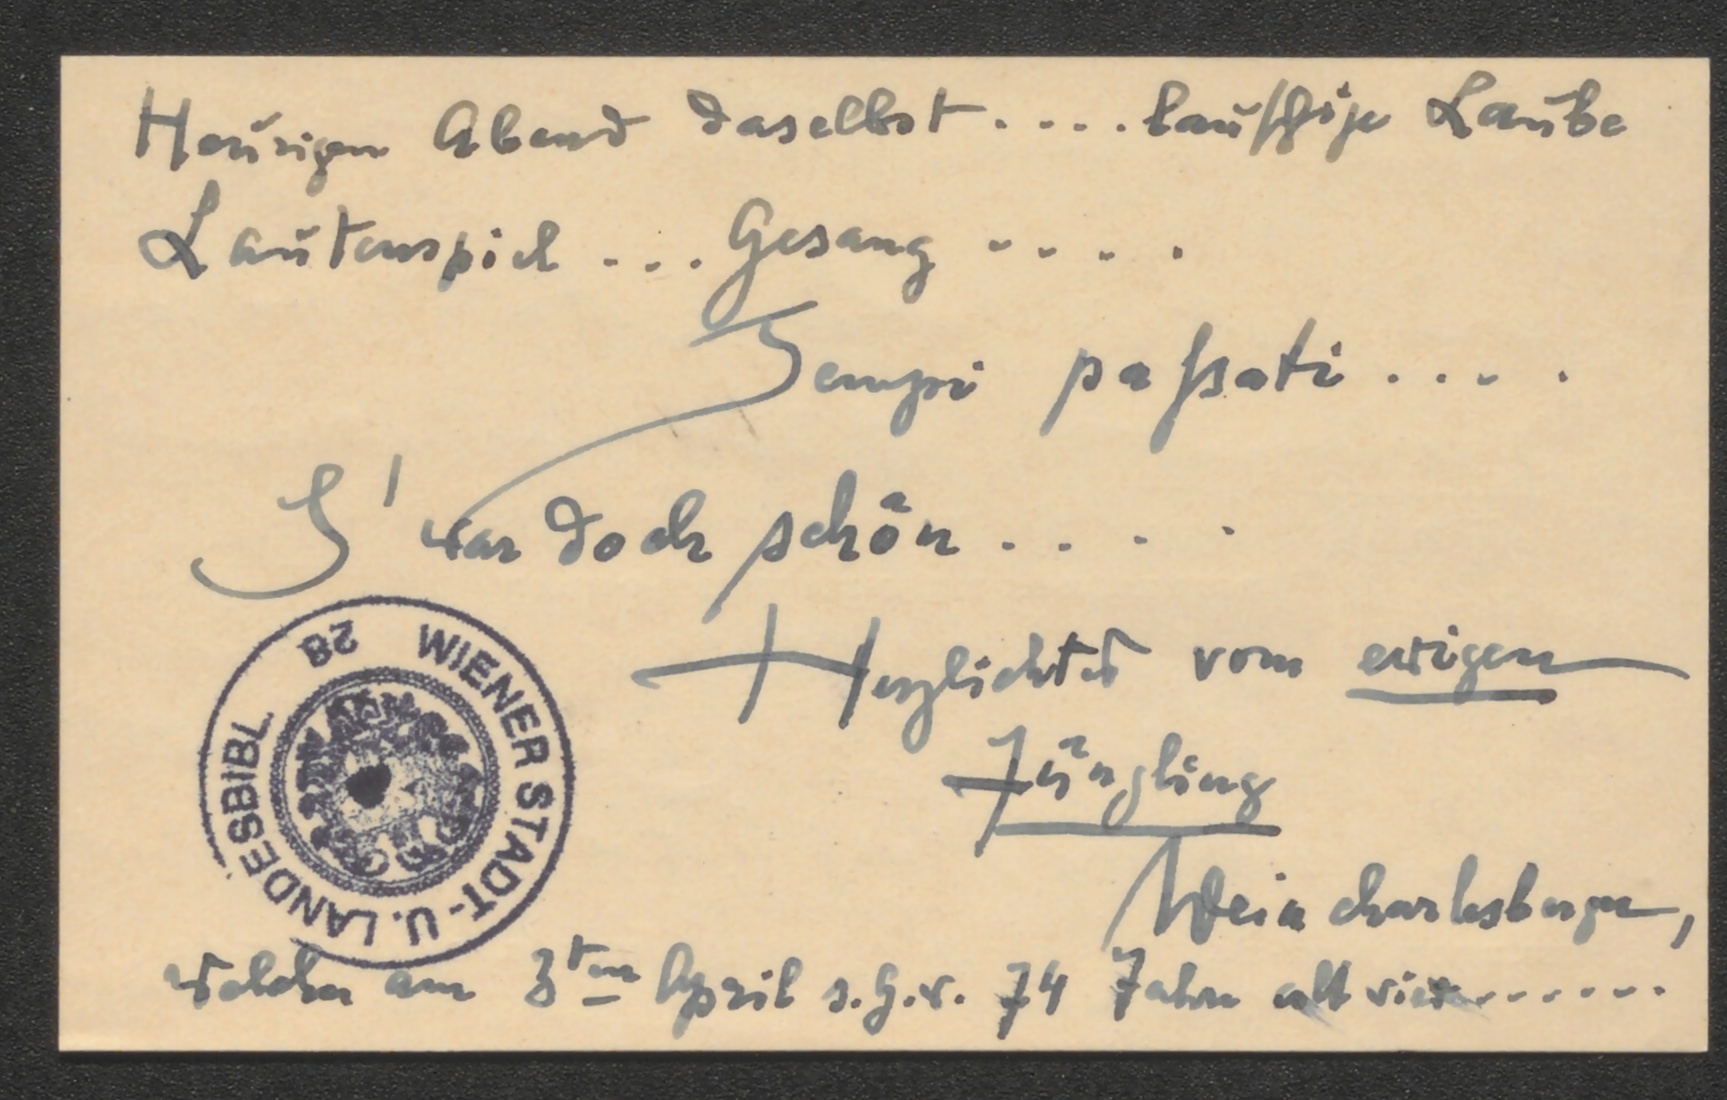 Heurigen Abend daselbst.... lauschige Laube
Lautenspiel ... Gesang ....
Tempi passati ....
S' war doch schön ....
Herzlichstes vom ewigen
Jüngling
welcher am 3ten April s.G.w. 74 Jahre alt wird......
WIENER STADT- U. LANDESBIBL. 28